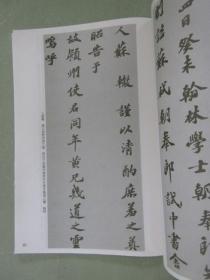 四日癸未翰林學士朝奉
誥蘇軾朝奉郎試中書舍
人蘇轍謹以清酌庶羞之奠
昭告于
故潁州使君同年黃兄幾道之靈
嗚呼